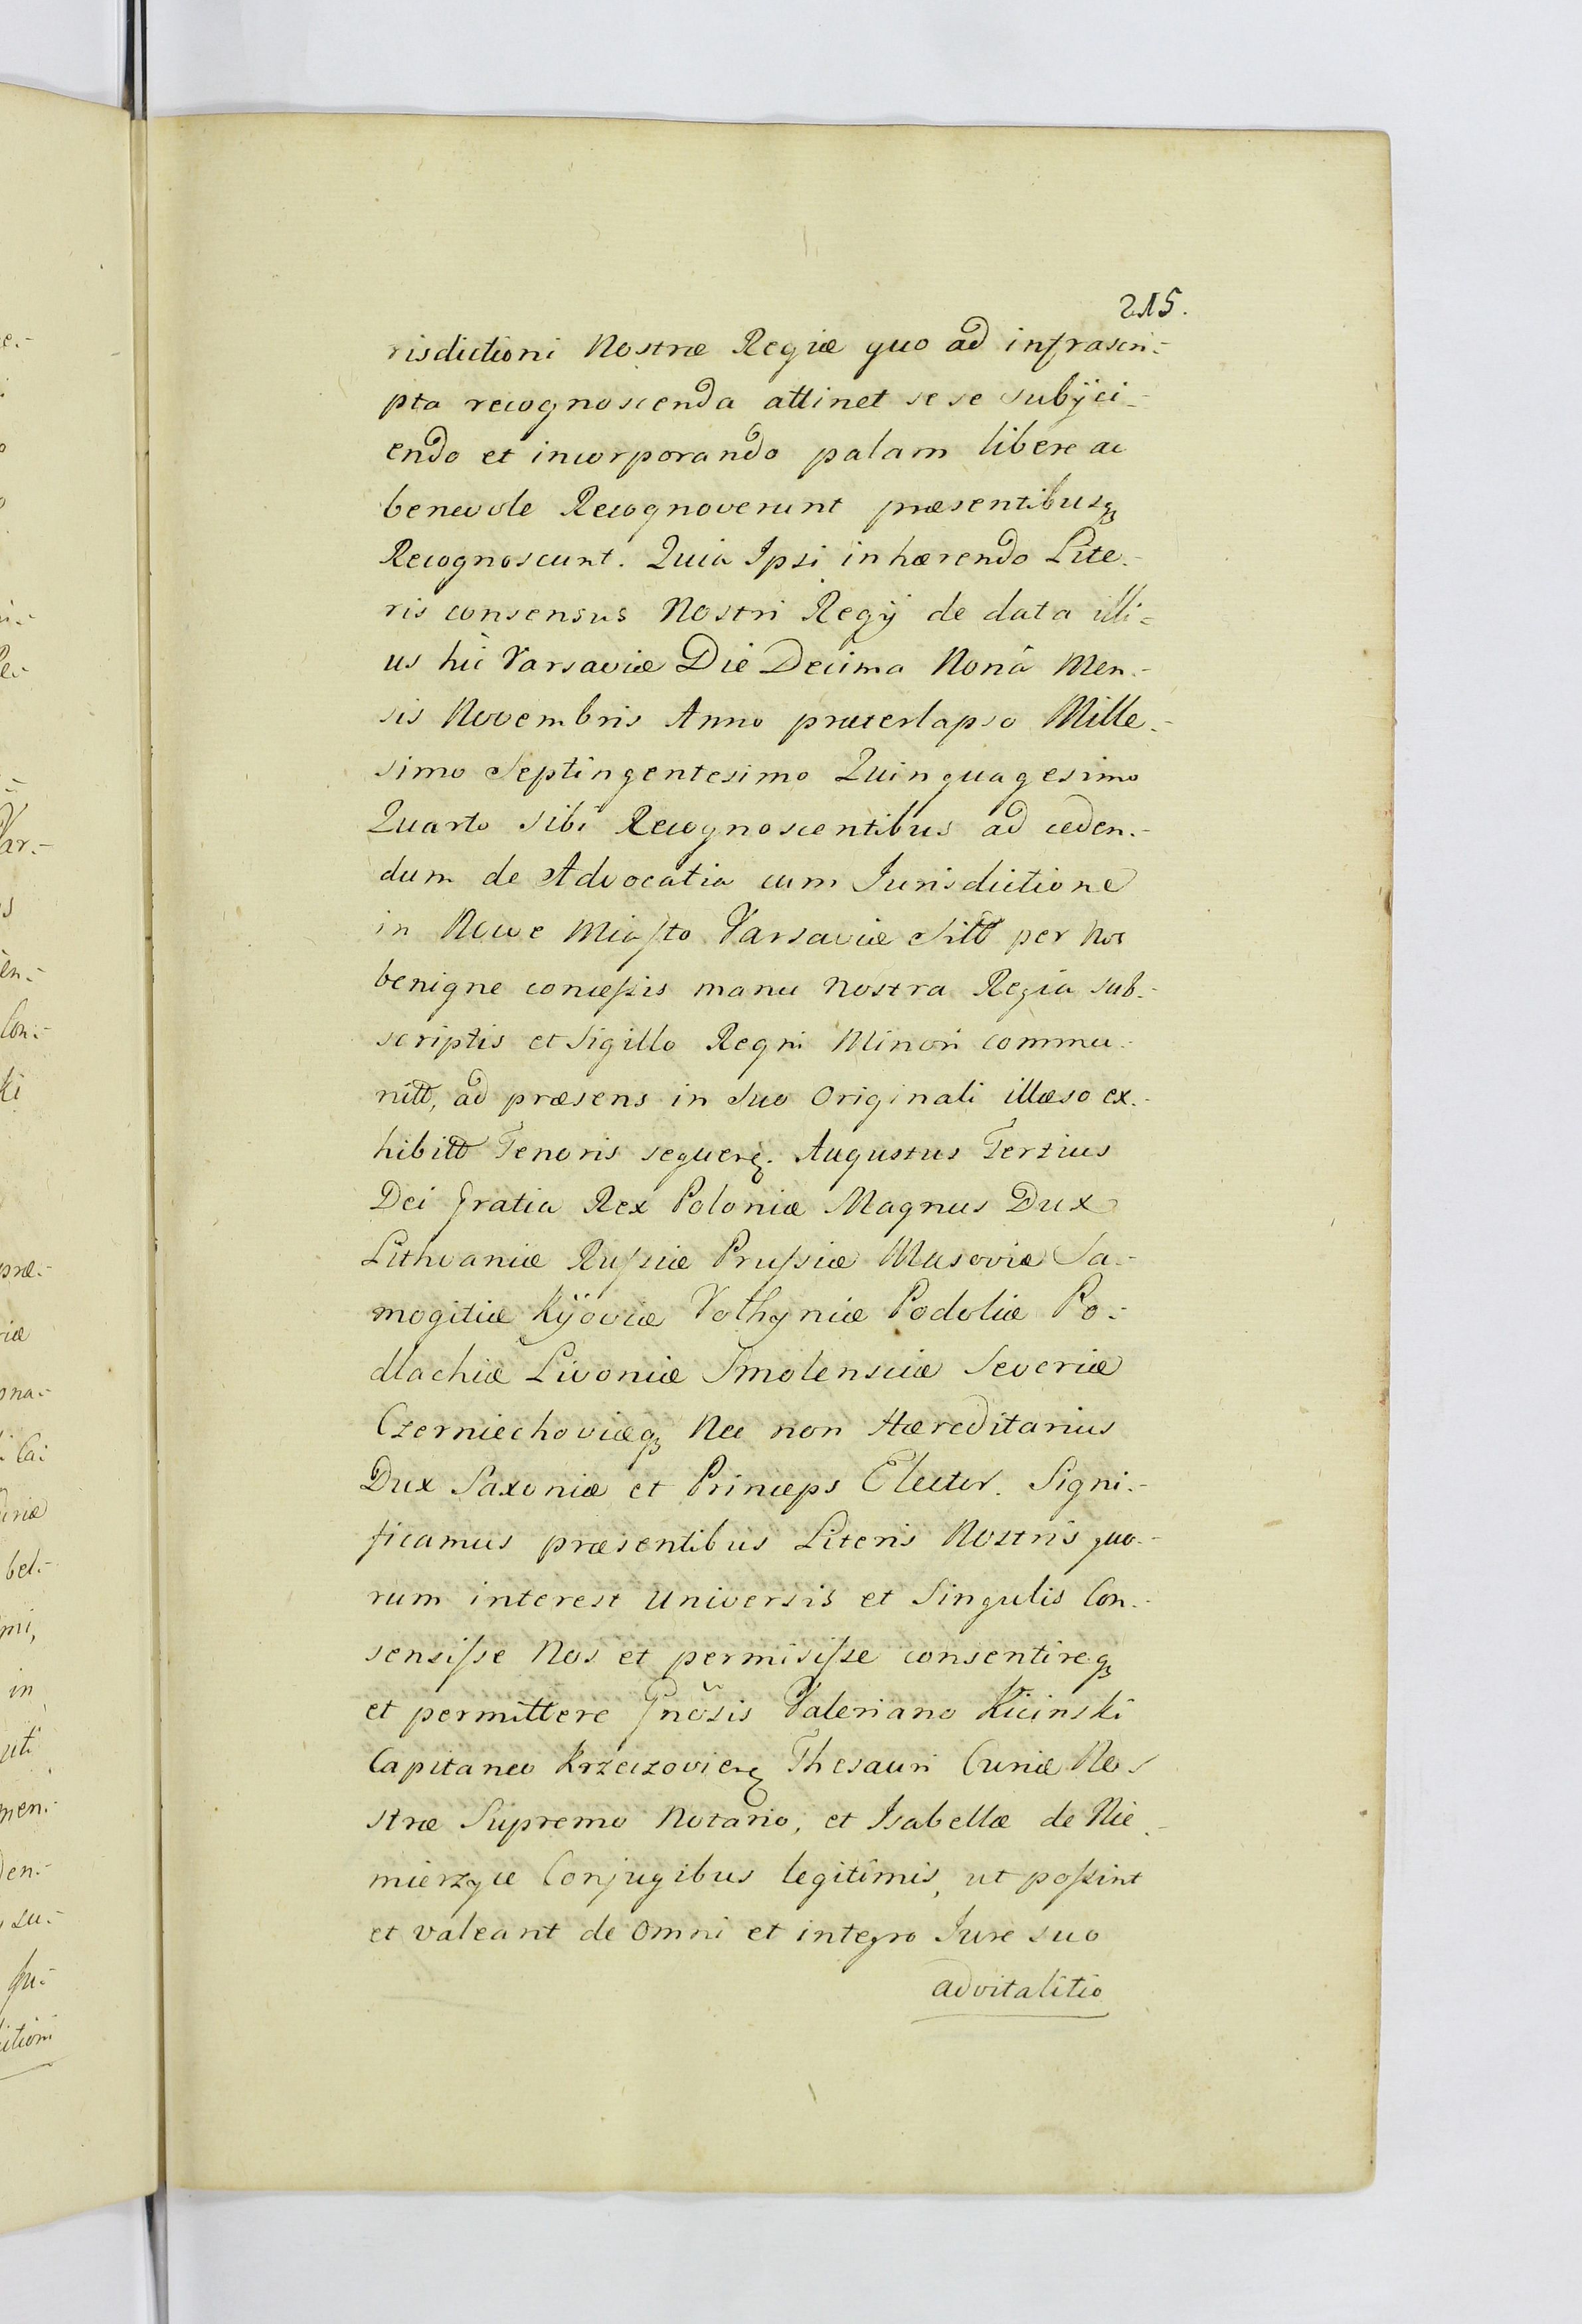 215.
risdictioni Nostræ Regiæ quo ad infrascri-
pta recognoscenda attinet se se subÿci-
endo et incorporando palam libere ac
benevole Recognoverunt præsentibusq
Recognoscunt. Quia Ipsi inhærendo Lite-
ris consensus Nostri Regÿ de data illi-
us hic Varsaviæ Die Decima Nonâ Men-
sis Novembris Anno præterlapso Mille-
simo Septingentesimo Quinquagesimo
Quarto sibi Recognoscentibus ad ceden-
dum de Advocatia cum Jurisdictione
in Nowe Miasto Varsaviæ Sitt per Nos
benigne concessis manu Nostra Regia sub-
scriptis et Sigillo Regni Minori commu-
nitt, ad præsens in suo Originali illæso ex-
hibitt Tenoris sequenq. Augustus Tertius
Dei Gratia Rex Poloniæ Magnus Dux
Lithvaniæ Russiæ Prussiæ Masoviæ Sa-
mogitiæ Kÿoviæ Volhyniæ Podoliæ Po-
dlachiæ Livoniæ Smolensciæ Severiæ
Czerniechoviæq Nec non Hæreditarius
Dux Saxoniæ et Princeps Elector. Signi-
ficamus præsentibus Literis Nostris quo-
rum interest Universis et Singulis Con-
sensisse Nos et permisisse consentireq
et permittere Gnosis Valeriano Kicinski
Capitaneo Krzeczovienq Thesauri Curiæ No-
stræ Supremo Notario, et Isabellæ de Nie-
mierzyce Conjugibus legitimis, ut possint
et valeant de omni et integro Jure suo
advitalitio